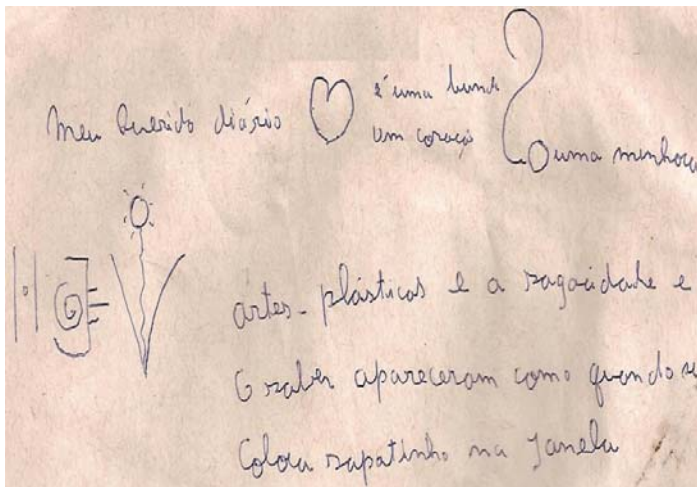 Meu Querido diário
é uma bunda
um coraçã
ou uma minhoca
artes-plásticas e a sagacidade e
O saber apareceram como quando se
Coloca sapatinho na Janela